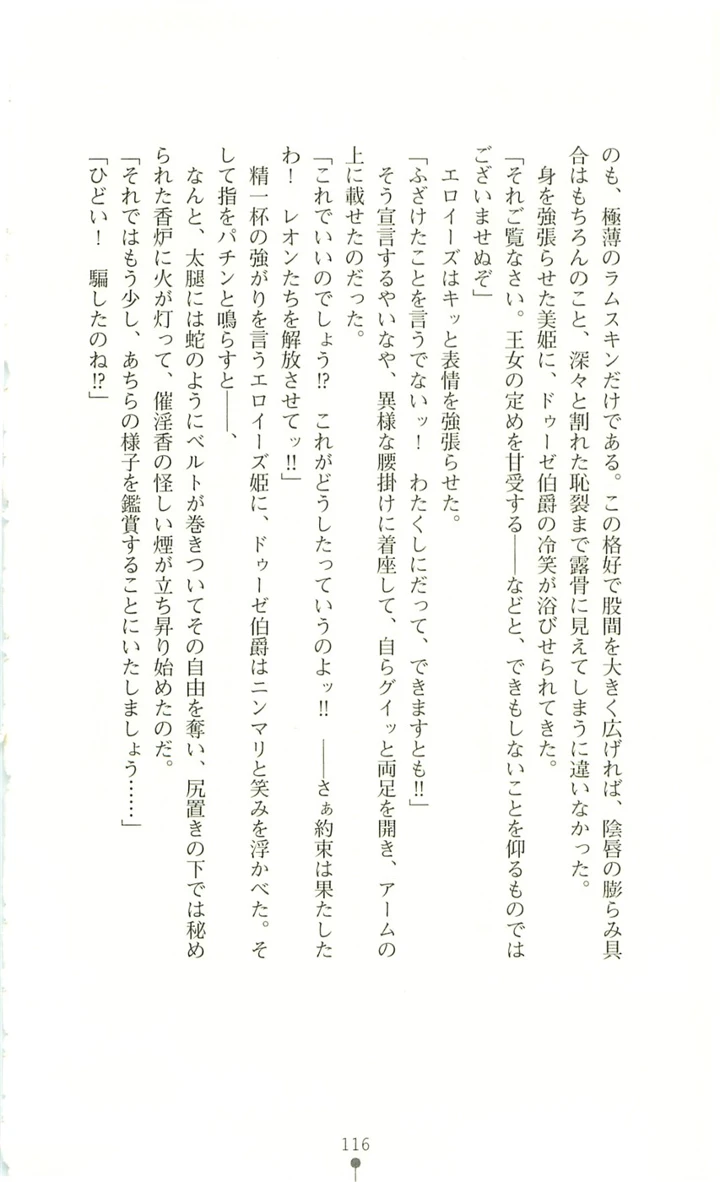 のも、極薄のラムスキンだけである。この格好で股間を大きく広げれば、陰唇の膨らみ具
合はもちろんのこと、深々と割れた恥裂まで露骨に見えてしまうに違いなかった。
身を強張らせた美姫に、ドゥーゼ伯爵の冷笑が浴びせられてきた。
「それご覧なさい。王女の定めを甘受する――などと、できもしないことを仰るものでは
ございませぬぞ」
エロイーズはキッと表情を強張らせた。
「ふざけたことを言うでないッ！　わたくしにだって、できますとも!!」
そう宣言するやいなや、異様な腰掛けに着座して、自らグイッと両足を開き、アームの
上に載せたのだった。
「これでいいのでしょう!?　これがどうしたっていうのよッ!!　――さぁ約束は果たした
わ！　レオンたちを解放させてッ!!」
精一杯の強がりを言うエロイーズ姫に、ドゥーゼ伯爵はニンマリと笑みを浮かべた。そ
して指をパチンと鳴らすと――、
なんと、太腿には蛇のようにベルトが巻きついてその自由を奪い、尻置きの下では秘め
られた香炉に火が灯って、催淫香の怪しい煙が立ち昇り始めたのだ。
「それではもう少し、あちらの様子を鑑賞することにいたしましょう……」
「ひどい！　騙したのね!?」
116